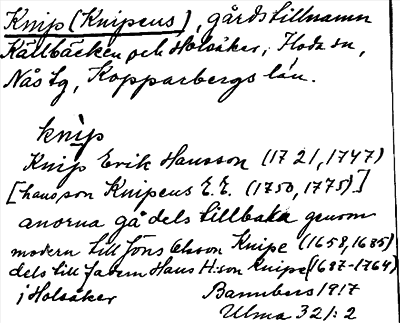 Knip (Knipeus), gårdstillnamn
Källbäcken och Holsåker, Floda sn,
Nås tg, Kopparbergs län.
knip
Knip Erik Hansson (1721, 1747)
[hans son Knipeus E. E. (1750, 1775)]
anorna gå dels tillbaka genom
modern till Jöns Olsson Knipe (1658, 1685)
dels till fadern Hans H:son Knipe (1687-1764)
i Holsåker Bannbers 1917
Ulma 321:2